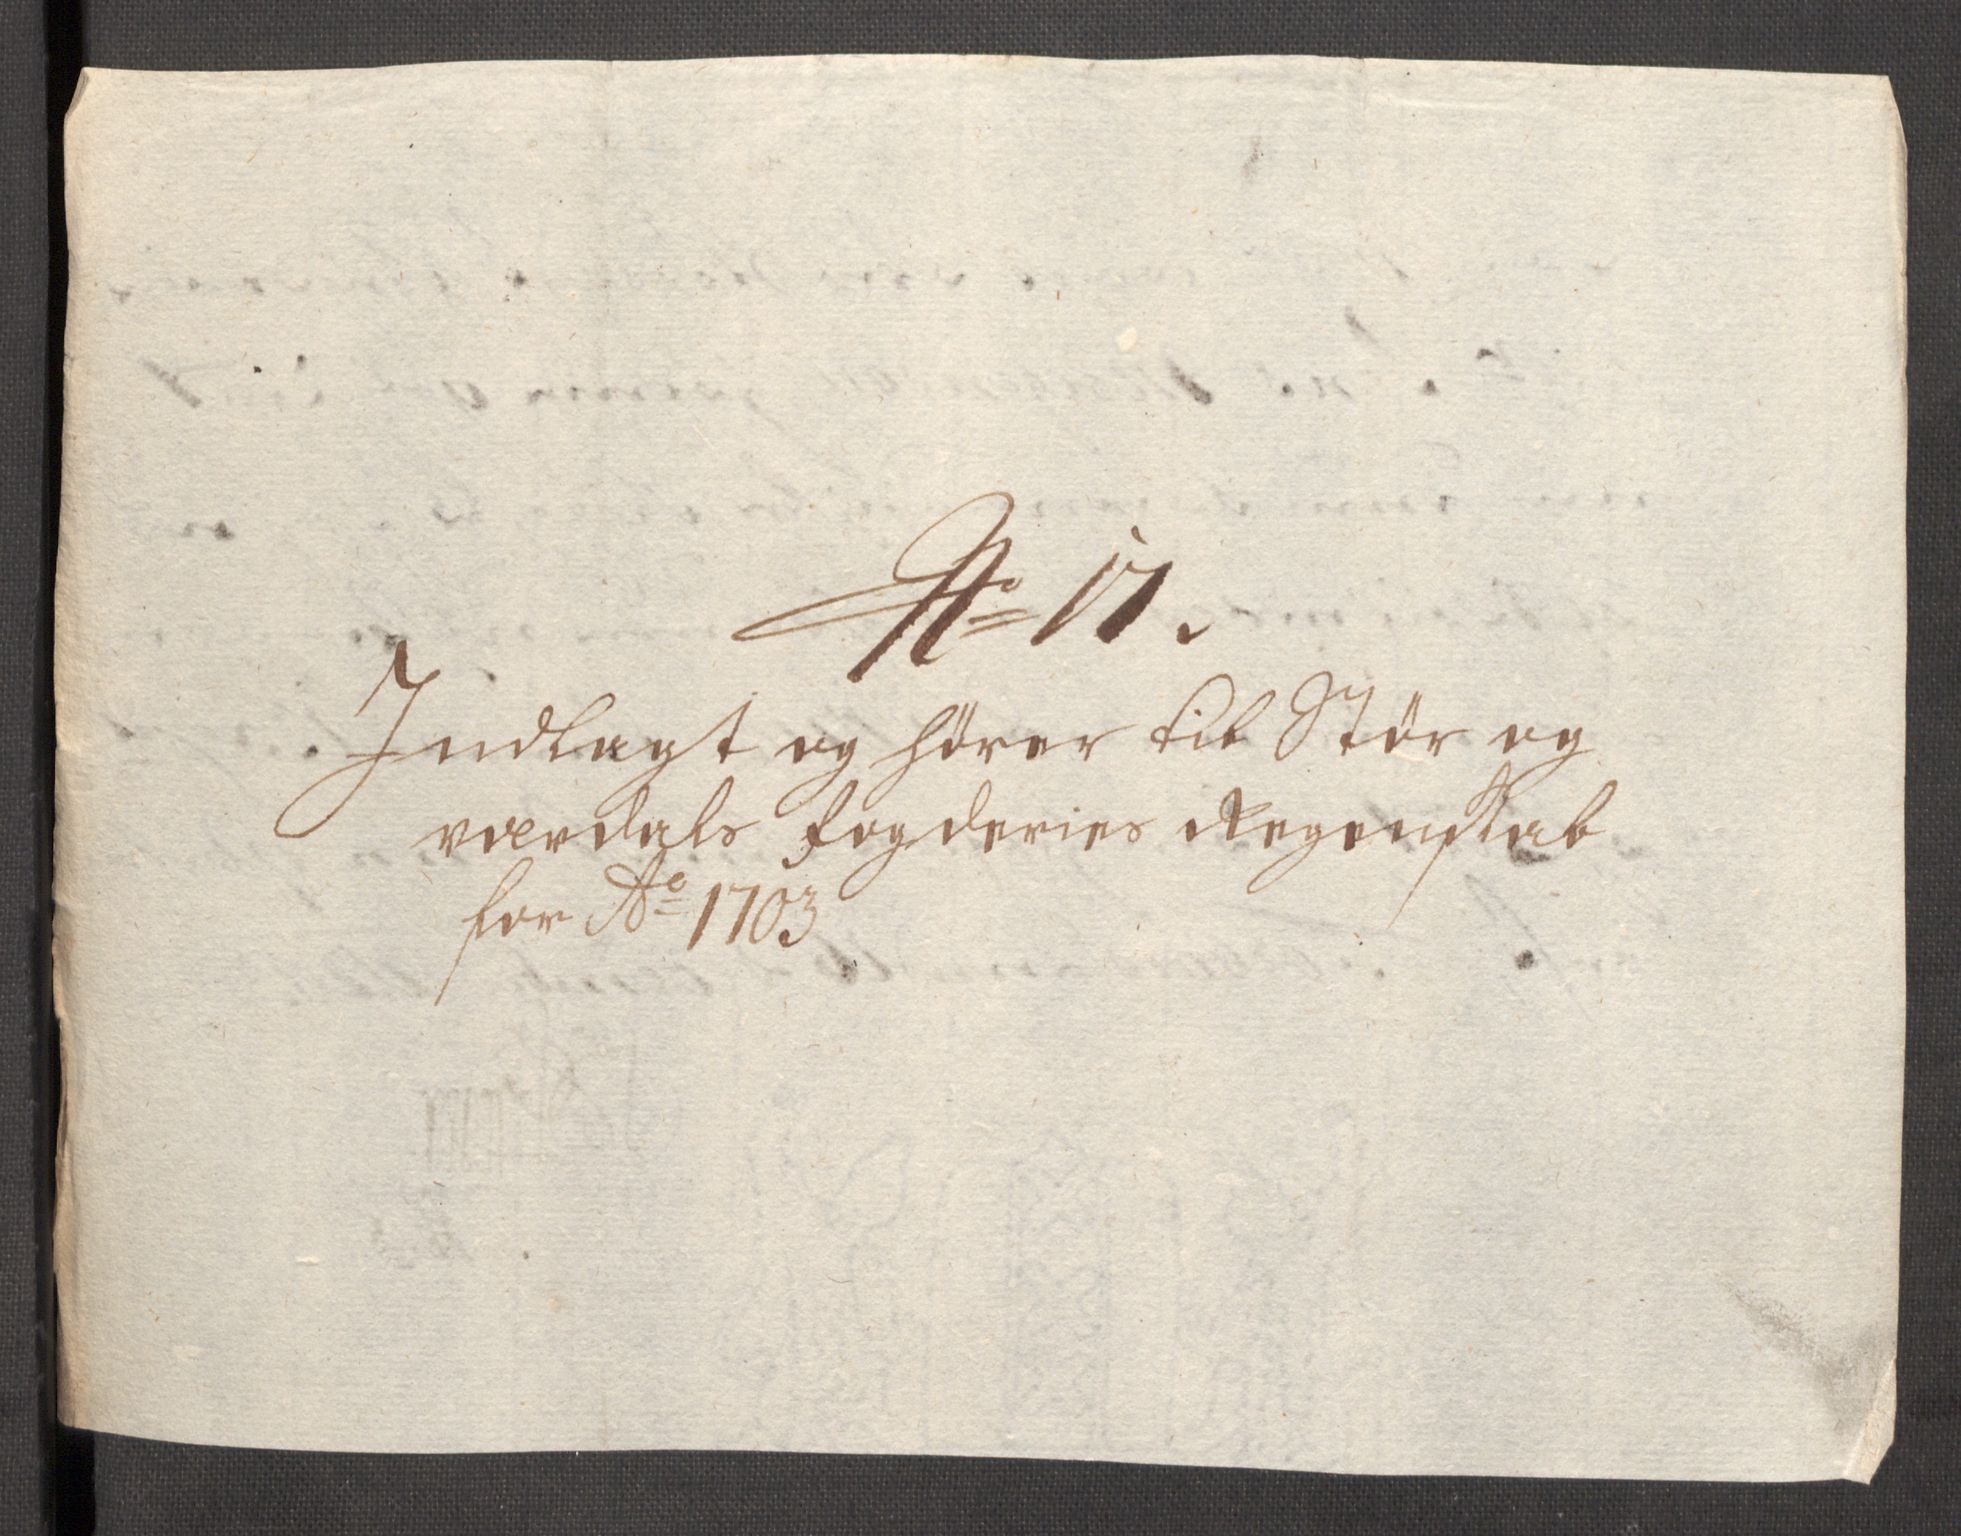 No 17.
Indlagt og hörer til Stör og
værdals fogderies Regenskab
for Ao 1703